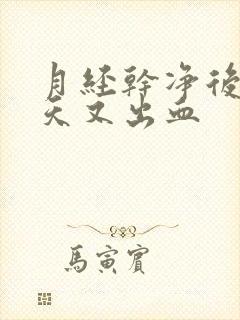 月经幹净後
天又出血
馬寅賓